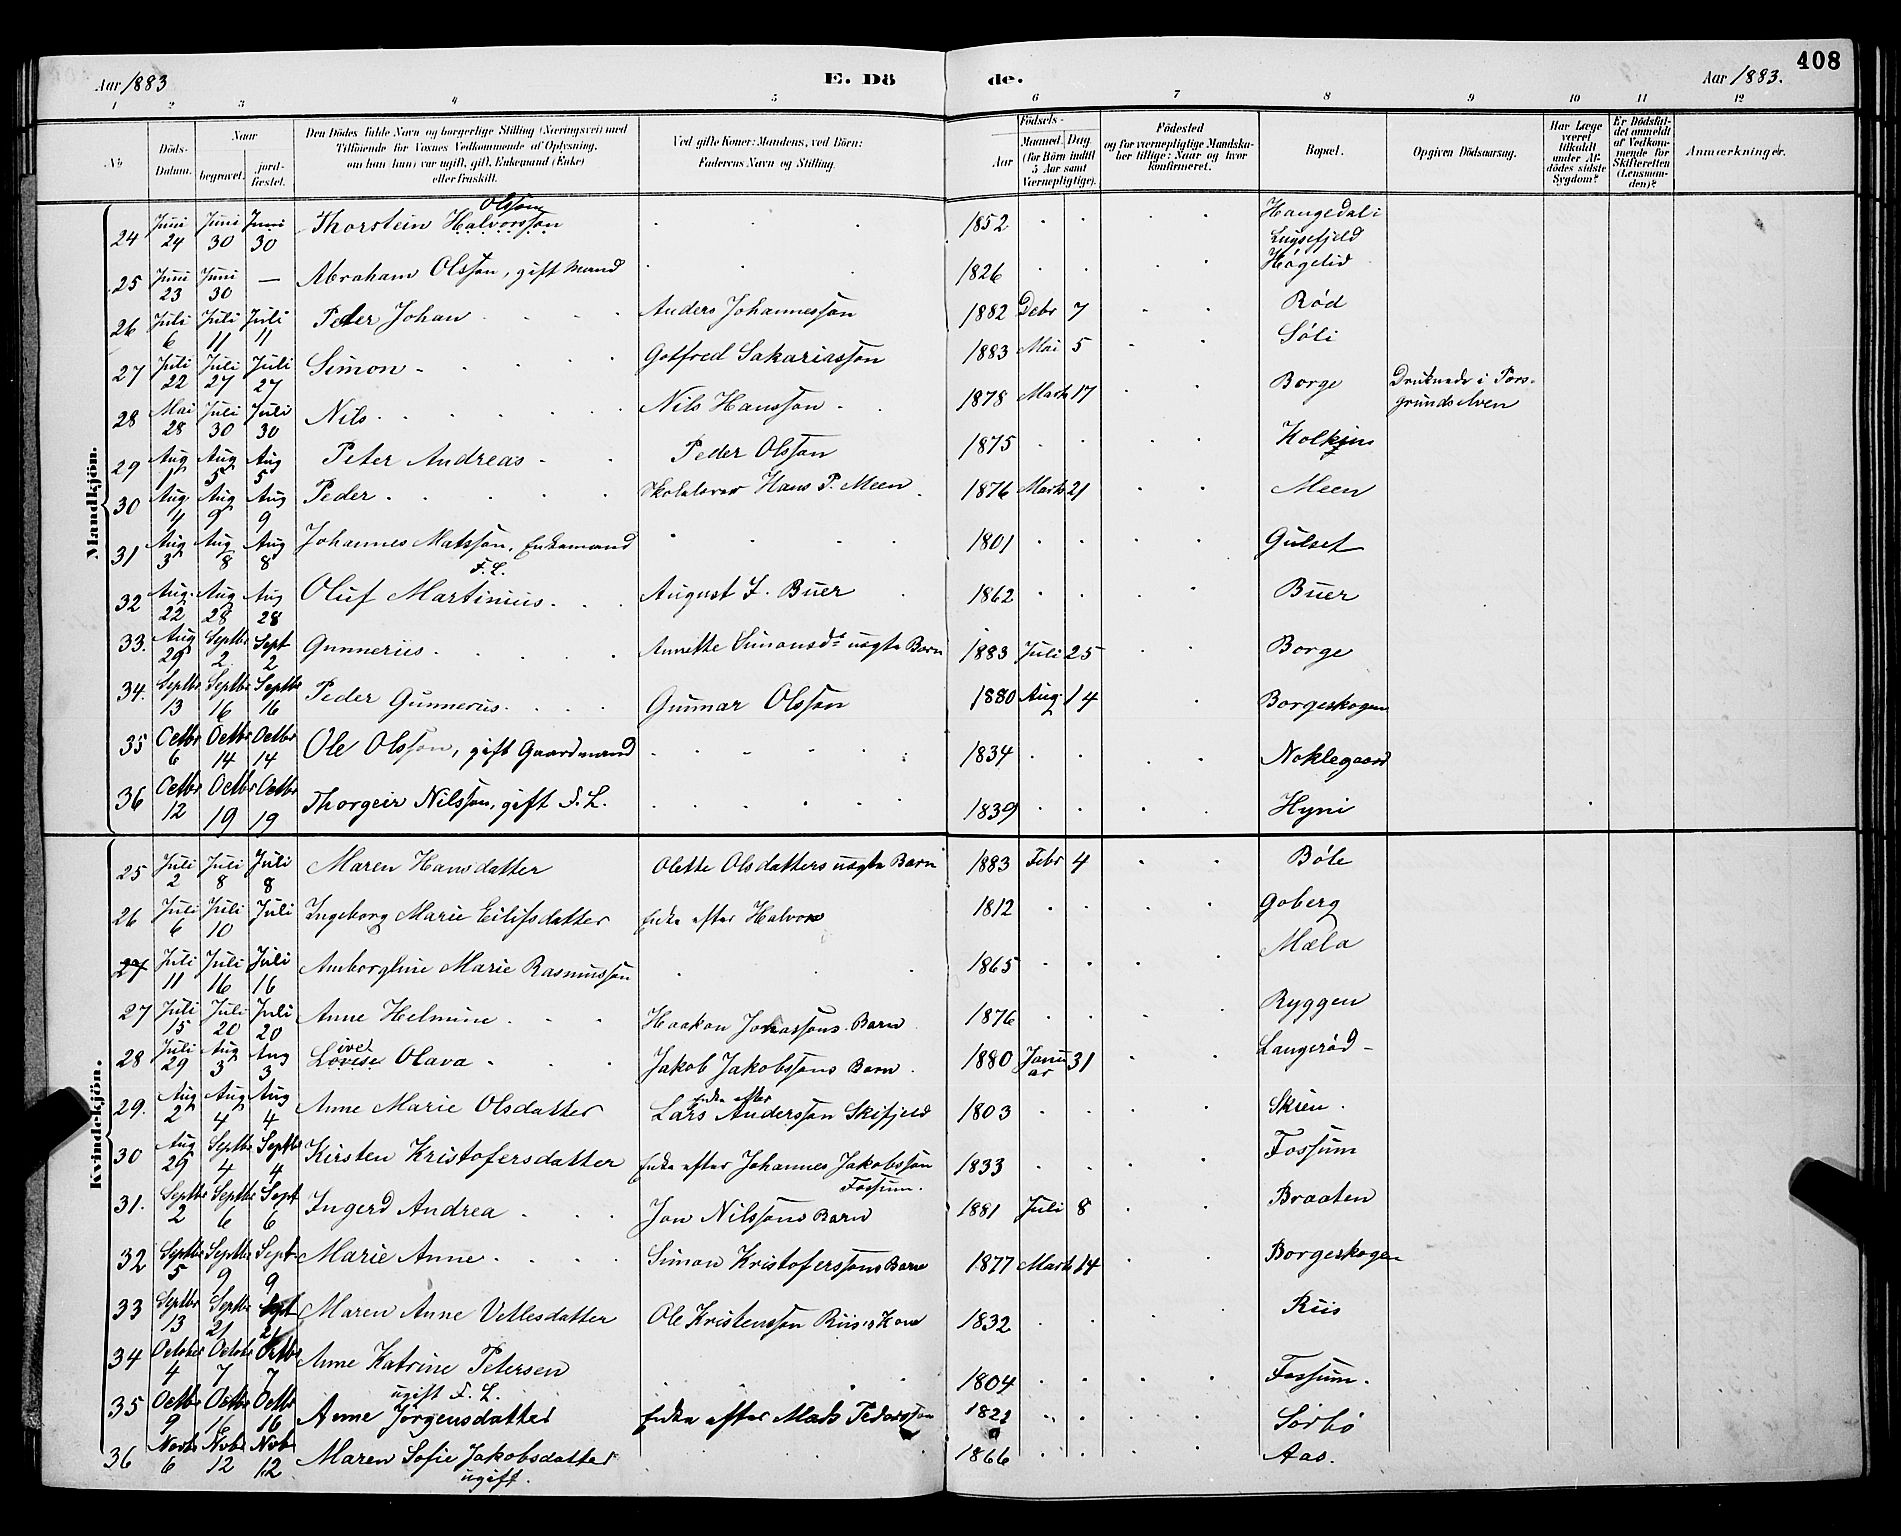 408
Aar 1883 E. Dö de. Aar 1883.
1 2 3 4 5 6 7 8 9 10 11 12
No Döds-Datum. Naar begravet. jordfæstet. Den Dödes fulde Navn og borgerlige Stilling (Næringsvei) med Tilföiende for Voxnes Vedkommende af Oplysning, om han (hun) var ugift, gift, Enkemand (Enke) eller fraskilt. Ved gifte Koner: Mandens, ved Börn: Faderens Navn og Stilling. Födsels- Aar Maaned Dag (for Börn indtil 5 Aar samt Værnepligtige). Födested og for værnepligtige Mandskaber tillige: Naar og hvor konfirmeret. Bopæl. Opgiven Dödsaarsag. Har Læge været tilkaldt under Afdödes sidste Sygdom? Er Dödsfaldet anmeldt af Vedkommende for Skifteretten (Lensmanden)? Anmærkninger.
Mandkjön.
24 Juni 24 Juni 30 Juni 30 Thorstein Halvorsson Olsson 1852 Haugedali Luysefjeld
25 Juni 23 Juni 30 — Abraham Olsson, gift Mand 1826 Høgelid
26 Juli 6 Juli 11 Juli 11 Peder Johan Anders Johannesson 1882 Debr 7 Rød
27 Juli 22 Juli 27 Juli 27 Simon Gotfred Sakariasson 1883 Mai 5 Søli
28 Mai 28 Juli 30 Juli 30 Nils Nils Hansson 1878 Marts 17 Borge Druknede i Porsgrundselven
29 Aug 1 Aug 5 Aug 5 Peter Andreas Peder Olsson 1875 Kolkjin
30 Aug 4 Aug 9 Aug 9 Peder Skolelærer Hans P. Meen 1876 Marts 21 Meen
31 Aug 3 Aug 8 Aug 8 Johannes Matsson, Enkemand F. L. 1801 Gulset
32 Aug. 22 Aug 28 Aug 28 Oluf Martinius August L. Buer 1862 Buer
33. Aug 29 Septbr 2 Sept 2 Gunnerius Annette Simonsdr uægte Barn 1883 Juli 25 Borge
34. Septbr 13 Septbr 16 Septbr 16 Peder Gunnerus Gunnar Olsson 1880 Aug. 14 Borgeskogen
35 Octbr 6 Octbr 14 Octbr 14 Ole Olsson, gift Gaardmand 1834 Noklegaard
36 Octbr 12 Octbr 19 Octbr 19 Thorgeir Nilsson, gift F. L. 1839 Hyni
Kvindekjön.
25 Juli 2 Juli 8 Juli 8 Maren Hansdatter Olette Olsdatters uægte Barn 1883 Febr 4 Bøle
26 Juli 6 Juli 10 Juli Ingeborg Marie Eilifsdatter Enke efter Halvor 1812 Goberg
27 Juli 11 Juli 16 Juli 16 Amborgline Marie Rasmusson 1865 Mæla
27 Juli 15 Juli 20 Juli 20 Anne Helmine Haakon Jonassons Barn 1876 Ryggen
28 Juli 29 Aug 3 Aug 3 Lovise ive Olava Jakob Jakobssons Barn 1880 Januar 31 Langerød
29. Aug 2 Aug 4 Aug 4 Anne Marie Olsdatter Enke efter Lars Andersson Skifjeld 1803 Skien
30 Aug 29 Septbr 4 Septbr 4 Kirsten Kristofersdatter Enke efter Johannes Jakobsson Fossum. 1833 Fossum
31. Septbr 2 Septbr 6 Sept 6 Ingerd Andrea Jon Nilssons Barn 1881 Juli 8 Braaten
32 Septbr 5 Septbr 9 Septbr 9 Marie Anne Simon Kristoferssons Barn 1877 Marts 14 Borgeskogen
33 Septbr 13 Septbr 21 Sept 21 Maren Anne Vetlesdatter Ole Kristensson Riis's Kone 1832 Riis
34 October 4 Octobr 7 Octbr 7 Anne Katrine Petersen ugift F. L. 1804 Fossum.
35 Octbr 9 Octbr 16 Octbr 16 Anne Jørgensdatter Enke efter Mads Pedersson 1822 Sørbø
36 Novbr 6 Novbr 12 Novbr 12 Maren Sofie Jakobsdatter ugift. 1866 Aas.